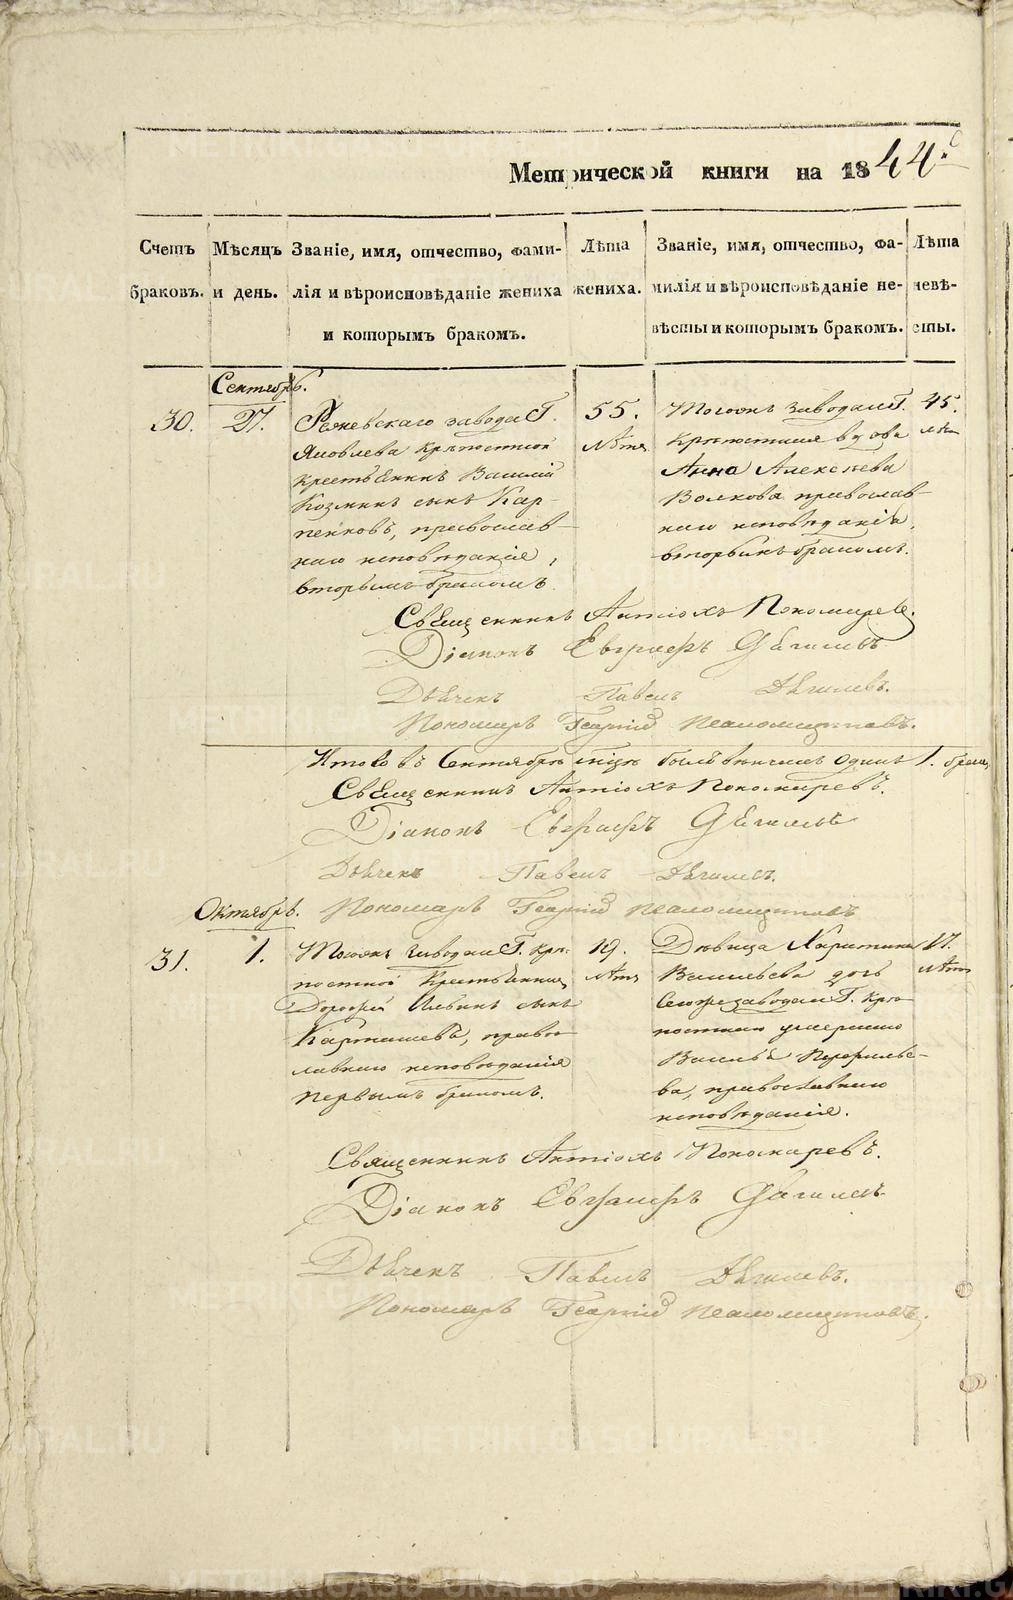 Метрической книги на 1844й
Счетъ браковъ.
Мѣсяцъ и день.
Званіе, имя, отчество, фами-
лія и вѣроисповѣданіе жениха
и которымъ бракомъ.
Лѣта
жениха.
Званіе, имя, отчество, фа-
милія и вѣроисповѣданіе не-
вѣсты и которымъ бракомъ.
Лѣта
невѣ-
сты.
Сентябрь.
30.
27.
завода Г.
Яковлева крѣпостной
крестьянинъ Василій
Козминъ сынъ Кар-
пенковъ, православ-
наго исповѣданія,
вторымъ бракомъ.
55.
Лѣтъ
Тогожъ завода Г.
крѣпостная вдова
Анна Алексѣева
Волкова православ-
наго исповѣданія,
вторымъ бракомъ.
45.
лѣтъ
Священникъ Антіохъ Пономаревъ.
Діаконъ Евграфъ Дягилевъ
Дьячекъ Павелъ Дягилевъ.
Пономарь Георгій Псаломщиковъ.
Итого въ Сентябрѣ мцѣ былъ вѣнчанъ одинъ 1. бракъ
Священникъ Антіохъ Пономаревъ.
Діаконъ Евграфъ Дягилевъ
Дьячекъ Павелъ Дягилевъ.
Октябрь. Пономарь Георгій Псаломщиковъ
31.
1.
Тогожъ завода Г. крѣ-
постной крестьянинъ
Дорофей Ильинъ сынъ
Карташевъ, право-
славнаго исповѣданія
первымъ бракомъ.
19.
лѣтъ
Дѣвица Харитина
Васильева дочь
Сегоже завода Г. крѣ-
постнаго умершаго
Василья Перфилье-
ва, православнаго
исповѣданія.
17.
лѣтъ
Священникъ Антіохъ Пономаревъ.
Діаконъ Евграфъ Дягилевъ
Дьячекъ Павелъ Дягилевъ.
Пономарь Георгій Псаломщиковъ.
METRIKI.GASO-URAL.RU